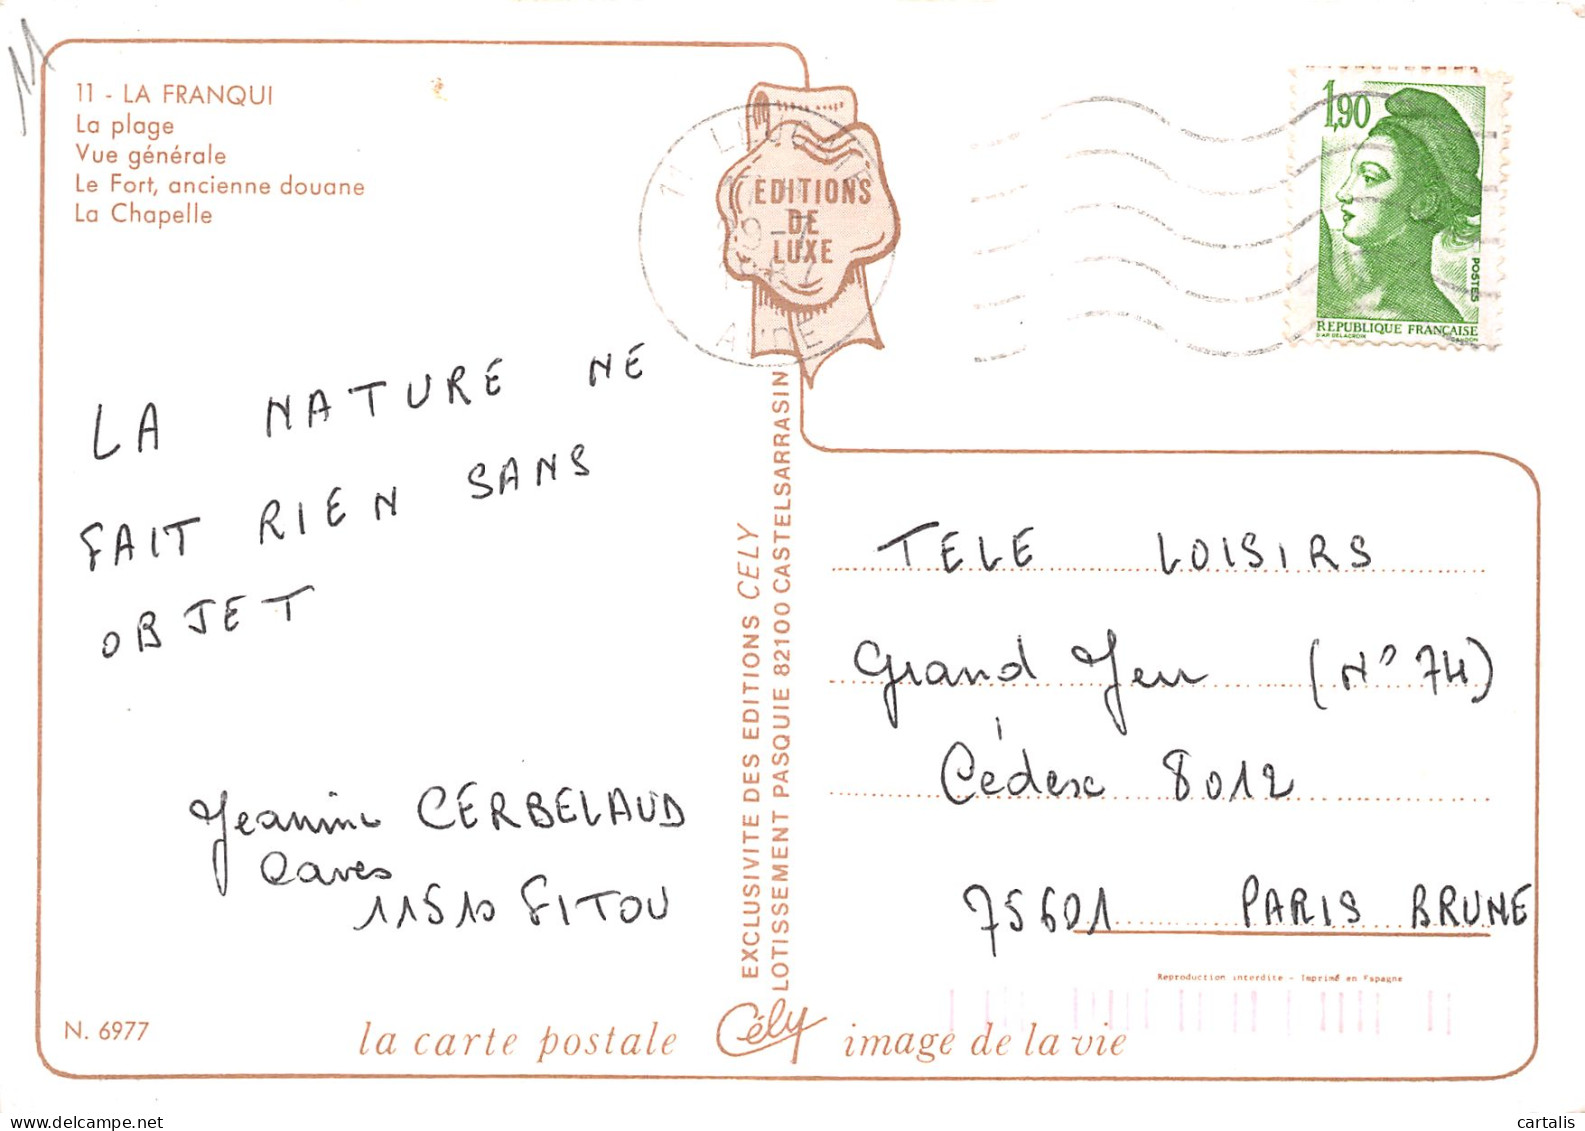 11
11 - LA FRANQUI
La plage
Vue générale
Le Fort, ancienne douane
La Chapelle
EDITIONS
DE
LUXE
11
AUDE
1,90
POSTES
REPUBLIQUE FRANÇAISE
LA NATURE NE
FAIT RIEN SANS
OBJET
Jeanine CERBELAUD
Caves
11510 FITOU
EXCLUSIVITE DES EDITIONS CELY
LOTISSEMENT PASQUIE 82100 CASTELSARRASIN
TELE LOISIRS
Grand Jeu (N° 74)
Cédex 8012
75601 PARIS BRUNE
Reproduction interdite - Imprimé en Espagne
N. 6977
la carte postale Cély image de la vie
cartalis
www.delcampe.net